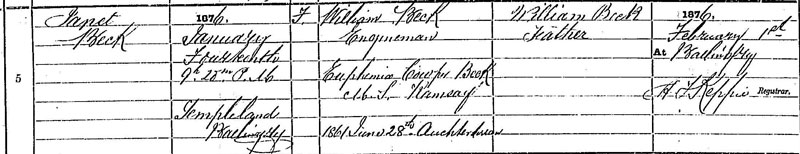 5
Janet
Beck
1876.
January
Fourteenth
9h 20m P.M.
Templeland
Ballingry
F.
William Beck
Engineman
Euphemia Cowper Beck
M.S. Ramsay
1861 June 28th Auchterderran
William Beck
Father
1876.
February 1st
At Ballingry
Registrar.